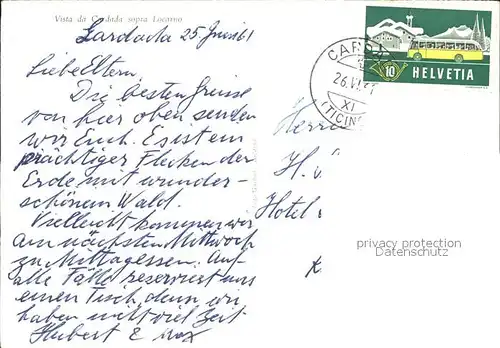 Vista da Cardada sopra Locarno
Cardada 25 Juni 61
Liebe Eltern,
Die besten Grüsse
von hier oben senden
wir Euch. Es ist ein
prächtiger Flecken der
Erde mit wunder-
schönem Wald.
Vielleicht kommen wir
am nächsten Mittwoch
zu Mittagessen. Auf
alle Fälle reserviert uns
einen Tisch, denn wir
haben nicht viel Zeit
Hubert &
HELVETIA
10
CARDADA
26.VI.61
XI
(TICINO)
Herrn
H.
Hotel
privacy protection
Datenschutz